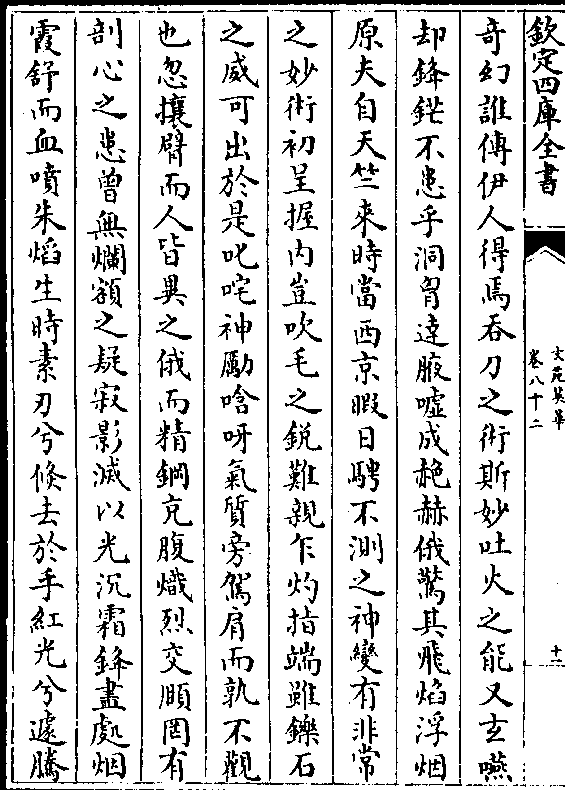 欽定四庫全書
文苑英華
卷八十二
十一
奇幻誰傳伊人得焉吞刀之術斯妙吐火之能又玄嚥
却鋒鋩不患乎洞胷達腋嘘成赩赫俄驚其飛焰浮烟
原夫自天竺來時當西京暇日騁不測之神變有非常
之妙術初呈握内豈吹毛之鋭難親乍灼指端雖鑠石
之威可出於是叱咤神勵唅呀氣質旁駕肩而孰不觀
也忽攘臂而人皆異之俄而精鋼充腹熾烈交頤罔有
剖心之患曾無爛額之疑寂影滅以光沉霜鋒盡處烟
霞舒而血噴朱熖生時素刃兮倐去於手紅光兮遽騰